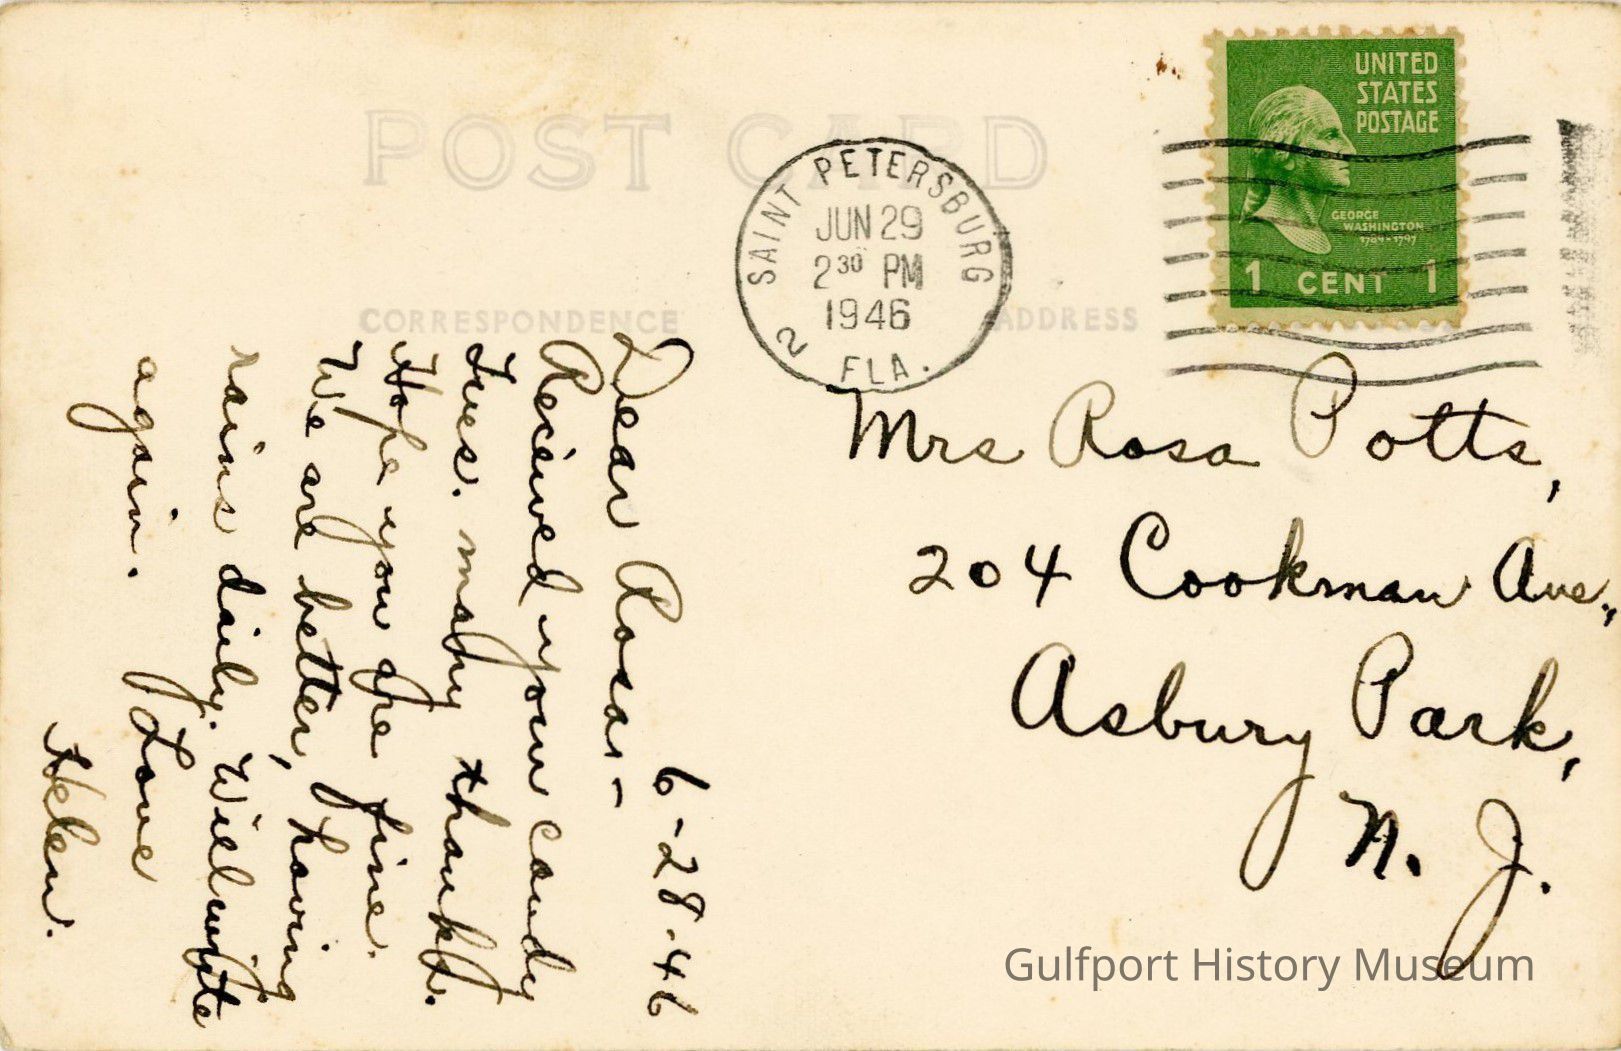 POST CARD
CORRESPONDENCE
ADDRESS
SAINT PETERSBURG
JUN 29
2 30 PM
1946
2
FLA.
UNITED
STATES
POSTAGE
GEORGE
WASHINGTON
1789-1797
1 CENT 1
6-28-46
Dear Rosa,-
Received your candy
Tues. many thanks.
Hope you are fine.
We are better, having
rains daily. Will write
again. Love
Helen.
Mrs Rosa Potts,
204 Cookman Ave.,
Asbury Park,
N. J.
Gulfport History Museum